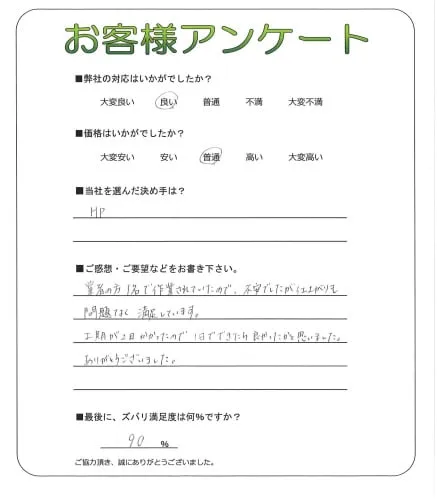 お客様アンケート
■弊社の対応はいかがでしたか？
大変良い 良い 普通 不満 大変不満
■価格はいかがでしたか？
大変安い 安い 普通 高い 大変高い
■当社を選んだ決め手は？
HP
■ご感想・ご要望などをお書き下さい。
業者の方1名で作業されていたので、不安でしたが仕上がりも
問題なく 満足しています。
工期が2日かかったので 1日でできたら良かったかと思いました。
ありがとうございました。
■最後に、ズバリ満足度は何%ですか？
90 %
ご協力頂き、誠にありがとうございました。